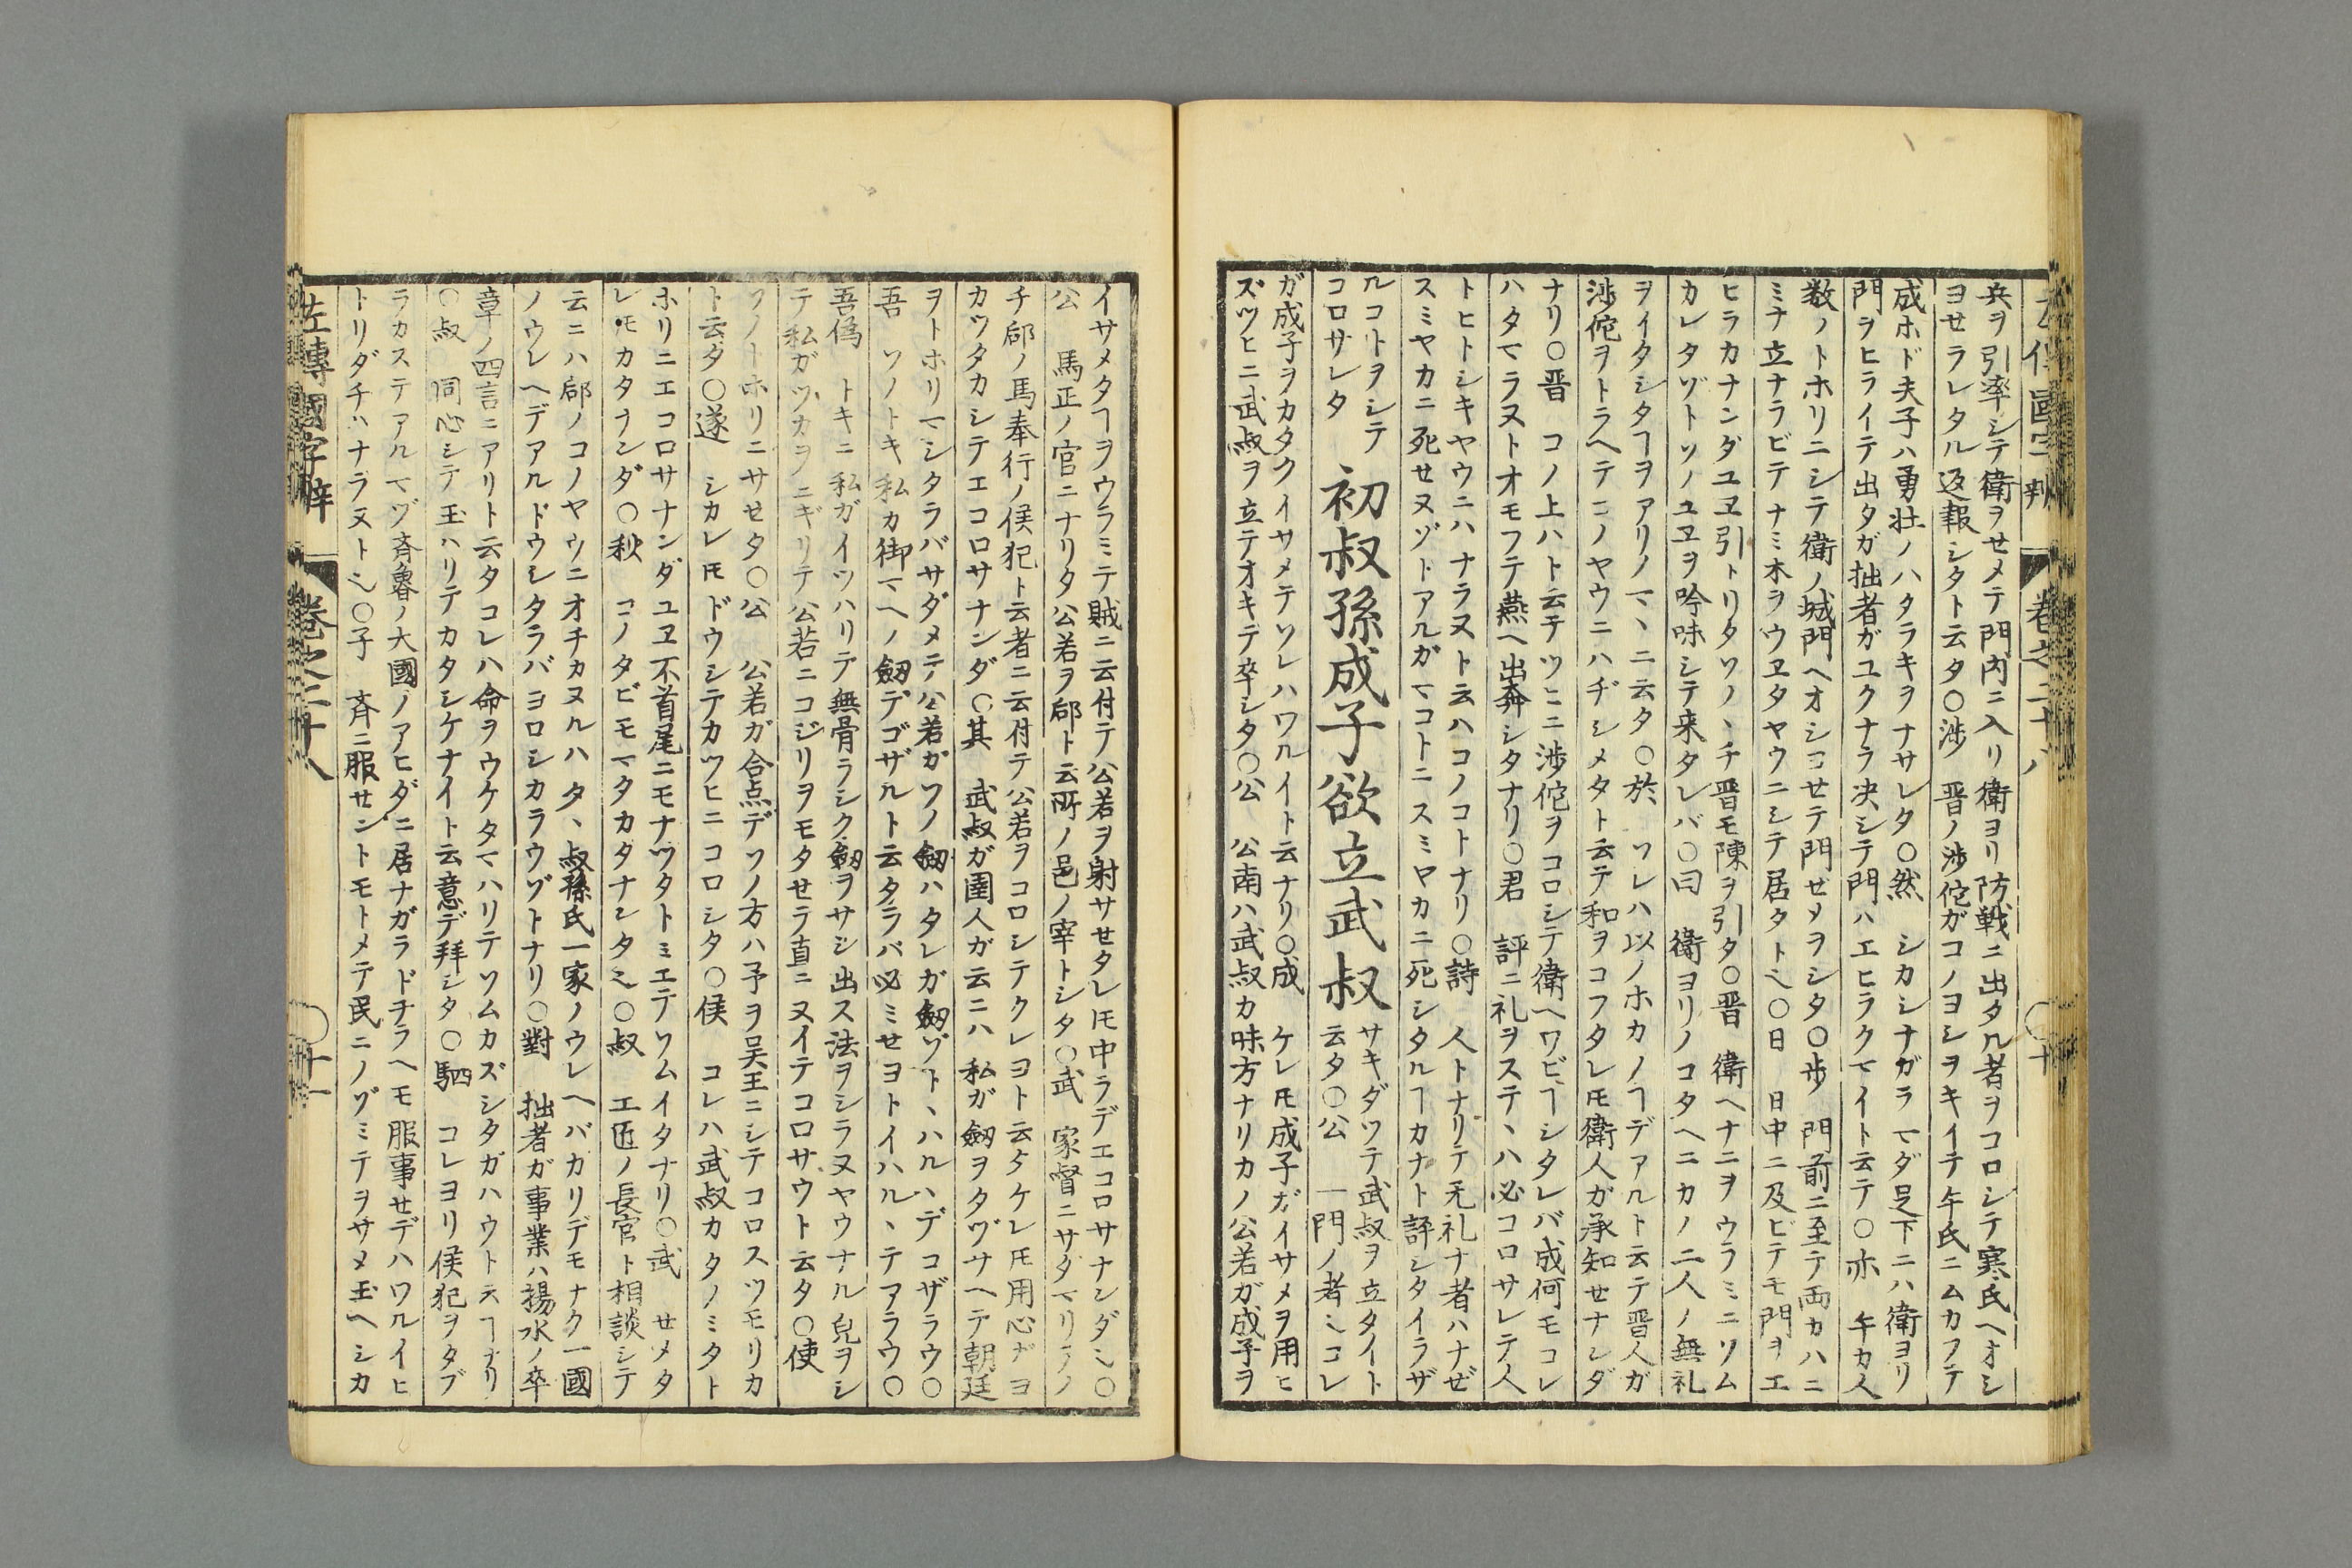 左傳國字辯 卷之二十八 〇十
兵ヲ引率シテ衛ヲセメテ門内ニ入リ衛ヨリ防戦ニ出タル者ヲコロシテ寒氏ヘオシ
ヨセラレタル返報シタト云タ〇渉 晋ノ渉佗ガコノヨシヲキイテ午氏ニムカフテ
成ホド夫子ハ勇壮ノハタラキヲナサレタ〇然 シカシナガラマダ足下ニハ衛ヨリ
門ヲヒライテ出タガ拙者ガユクナラ决シテ門ハエヒラクマイト云テ〇亦 午カ人
数ノトホリニシテ衛ノ城門ヘオシコセテ門セメヲシタ〇歩 門前ニ至テ両カハニ
ミナ立ナラビテナミ木ヲウヱタヤウニシテ居タト〻〇日 日中ニ及ビテモ門ヲエ
ヒラカナンダユヱ引トリタソノヽチ晋モ陳ヲ引タ〇晋 衛ヘナニヲウラミニソム
カレタゾトソノユヱヲ吟味シテ来タレバ〇曰 衛ヨリノコタヘニカノ二人ノ無礼
ヲイタシタヿヲアリノマヽニ云タ〇於 ソレハ以ノホカノヿデアルト云テ晋人ガ
渉佗ヲトラヘテコノヤウニハヂシメタト云テ和ヲコフタレ𪜈衛人ガ承知セナンダ
ナリ〇晋 コノ上ハト云テツヒニ渉佗ヲコロシテ衛ヘワビヿシタレバ成何モコレ
ハタマラヌトオモフテ燕ヘ出奔シタナリ〇君 評ニ礼ヲステヽハ必コロサレテ人
トヒトシキヤウニハナラヌト云ハコノコトナリ〇詩 人トナリテ无礼ナ者ハナゼ
スミヤカニ死セヌゾトアルガマコトニスミヤカニ死シタルヿカナト評シタイラザ
ルコトヲシテ
コロサレタ
初叔孫成子欲立武叔
サキダツテ武叔ヲ立タイト
云タ〇公 一門ノ者〻コレ
ガ成子ヲカタクイサメテソレハワルイト云ナリ〇成 ケレ𪜈成子ガイサメヲ用ヒ
ズツヒニ武叔ヲ立テオキテ卒シタ〇公 公南ハ武叔カ味方ナリカノ公若ガ成子ヲ
イサメタヿヲウラミテ賊ニ云付テ公若ヲ射サセタレ𪜈中ラデエコロサナンダ〻〇
公 馬正ノ官ニナリタ公若ヲ郈ト云所ノ邑ノ宰トシタ〇武 家督ニサダマリテノ
チ郈ノ馬奉行ノ侯犯ト云者ニ云付テ公若ヲコロシテクレヨト云タケレ𪜈用心ガヨ
カツタカシテエコロサナンダ〇其 武叔ガ圉人ガ云ニハ私ガ劔ヲタヅサヘテ朝廷
ヲトホリマシタラバサダメテ公若ガソノ劔ハタレガ劔ゾトヽハルハデコザラウ〇
吾 ソノトキ私カ御マヘノ劔デゴザルト云タラバ必ミセヨトイハルヽテアラウ〇
吾偽 トキニ私ガイツハリテ無骨ラシク劔ヲサシ出ス法ヲシラヌヤウナル皃ヲシ
テ私ガツカヲニギリテ公若ニコジリヲモタセラ直ニヌイテコロサウト云タ〇使
ソノトホリニサセタ〇公 公若ガ合点デソノ方ハ予ヲ吴王ニシテコロスツモリカ
ト云タ〇遂 シカレ𪜈ドウシテカツヒニコロシタ〇侯 コレハ武叔カタノミタト
ホリニエコロサナンダユヱ不首尾ニモナツタトミエテソムイタナリ〇武 セメタ
レ𪜈カタヲンダ〇秋 コノタビモマタカタナンタ〻〇叔 工匠ノ長官ト相談シテ
云ニハ郈ノコノヤウニオチカヌルハタヽ叔孫氏一家ノウレヘバカリデモナク一國
ノウレヘデアルドウシタラバヨロシカラウゾトナリ〇對 拙者ガ事業ハ揚水ノ卒
章ノ四言ニアリト云タコレハ命ヲウケタマハリテソムカズシタガハウト云ヿナリ
〇叔 同心シテ玉ハリテカタシケナイト云意デ拜シタ〇駟 コレヨリ侯犯ヲタブ
ラカステアルマヅ斉魯ノ大國ノアヒダニ居ナガラドチラヘモ服事セデハワルイヒ
トリダチハナラヌト〻〇子 斉ニ服セントモトメテ民ニノゾミテヲサメ玉ヘシカ
左傳國字辯 卷之二十八 〇十一